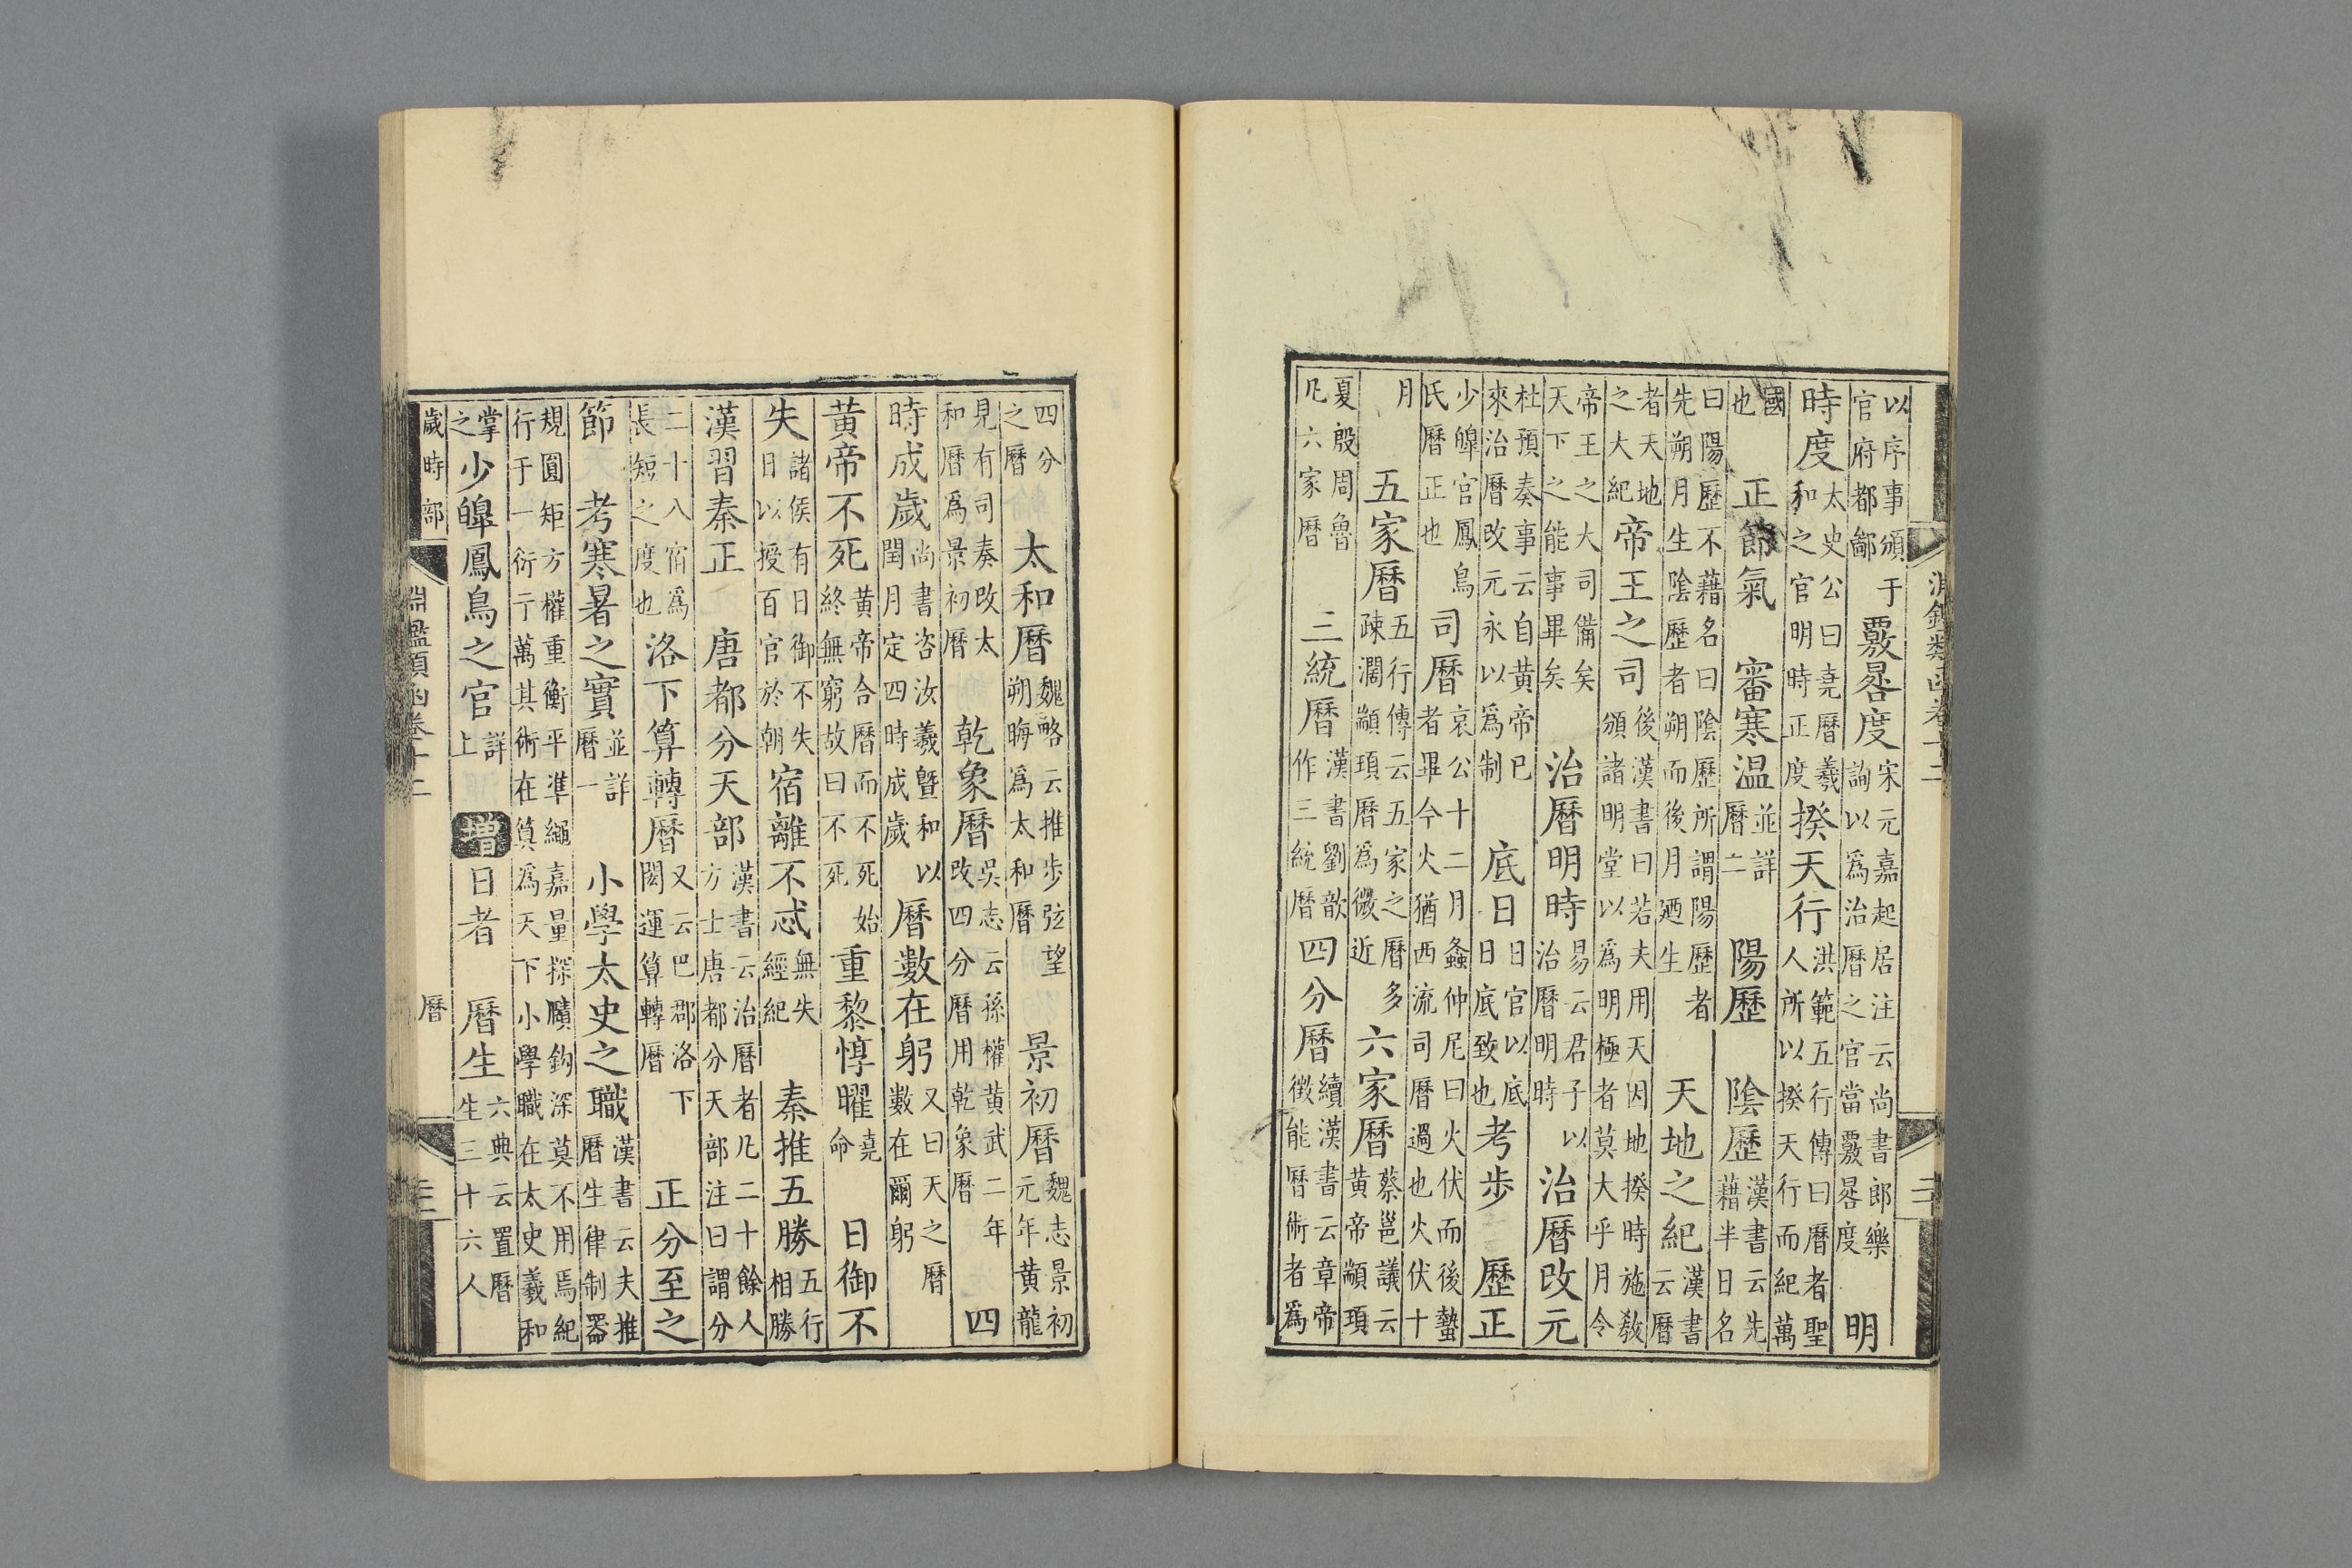 淵鑑類函卷十二
以序事頒于官府都鄙覈晷度宋元嘉起居注云尚書郎樂詢以爲治曆之官當覈晷度明
時度太史公曰堯曆羲和之官明時正度揆天行洪範五行傳曰曆者聖人所以揆天行而紀萬
國也正節氣審寒温並詳曆二陽歷陰歷漢書云先藉半日名
曰陽歷不藉名曰陰歷所謂陽歷者先朔月生陰歷者朔而後月廼生天地之紀漢書云曆
者天地之大紀帝王之司後漢書曰若夫用天因地揆時施敎頒諸明堂以爲明極者莫大乎月令
帝王之大司備矣天下之能事畢矣治曆明時易云君子以治曆明時治曆改元
杜預奏事云自黃帝已來治曆改元永以爲制底日日官以底日底致也考步歷正
少皥官鳳鳥氏曆正也司曆哀公十二月螽仲尼曰火伏而後蟄者畢今火猶西流司曆過也火伏十
月五家曆五行傳云五家之曆多疎濶顓頊曆爲微近六家曆蔡邕議云黃帝顓頊
夏殷周魯凡六家曆三統曆漢書劉歆作三統曆四分曆續漢書云章帝徵能曆術者爲
四分之曆太和曆魏略云推步弦望朔晦爲太和曆景初曆魏志景初元年黃龍
見有司奏改太和曆爲景初曆乾象曆吳志云孫權黃武二年改四分曆用乾象曆四
時成歲尚書咨汝羲曁和以閏月定四時成歲曆數在躬又曰天之曆數在爾躬
黃帝不死黃帝合曆而不死始終無窮故曰不死重黎惇曜堯命日御不
失諸侯有日御不失日以授百官於朝宿離不忒無失經紀秦推五勝五行相勝
漢習秦正唐都分天部漢書云治曆者凡二十餘人方士唐都分天部注曰謂分
二十八宿爲長短之度也洛下算轉曆又云巴郡洛下閎運算轉曆正分至之
節考寒暑之實並詳曆一小學太史之職漢書云夫推曆生律制器
規圓矩方權重衡平準繩嘉量探賾鈎深莫不用焉紀行于一衍于萬其術在筭爲天下小學職在太史羲和
掌之少皥鳳鳥之官詳上增日者曆生六典云置曆生三十六人
歲時部 曆
淵鑑類函卷十二 三